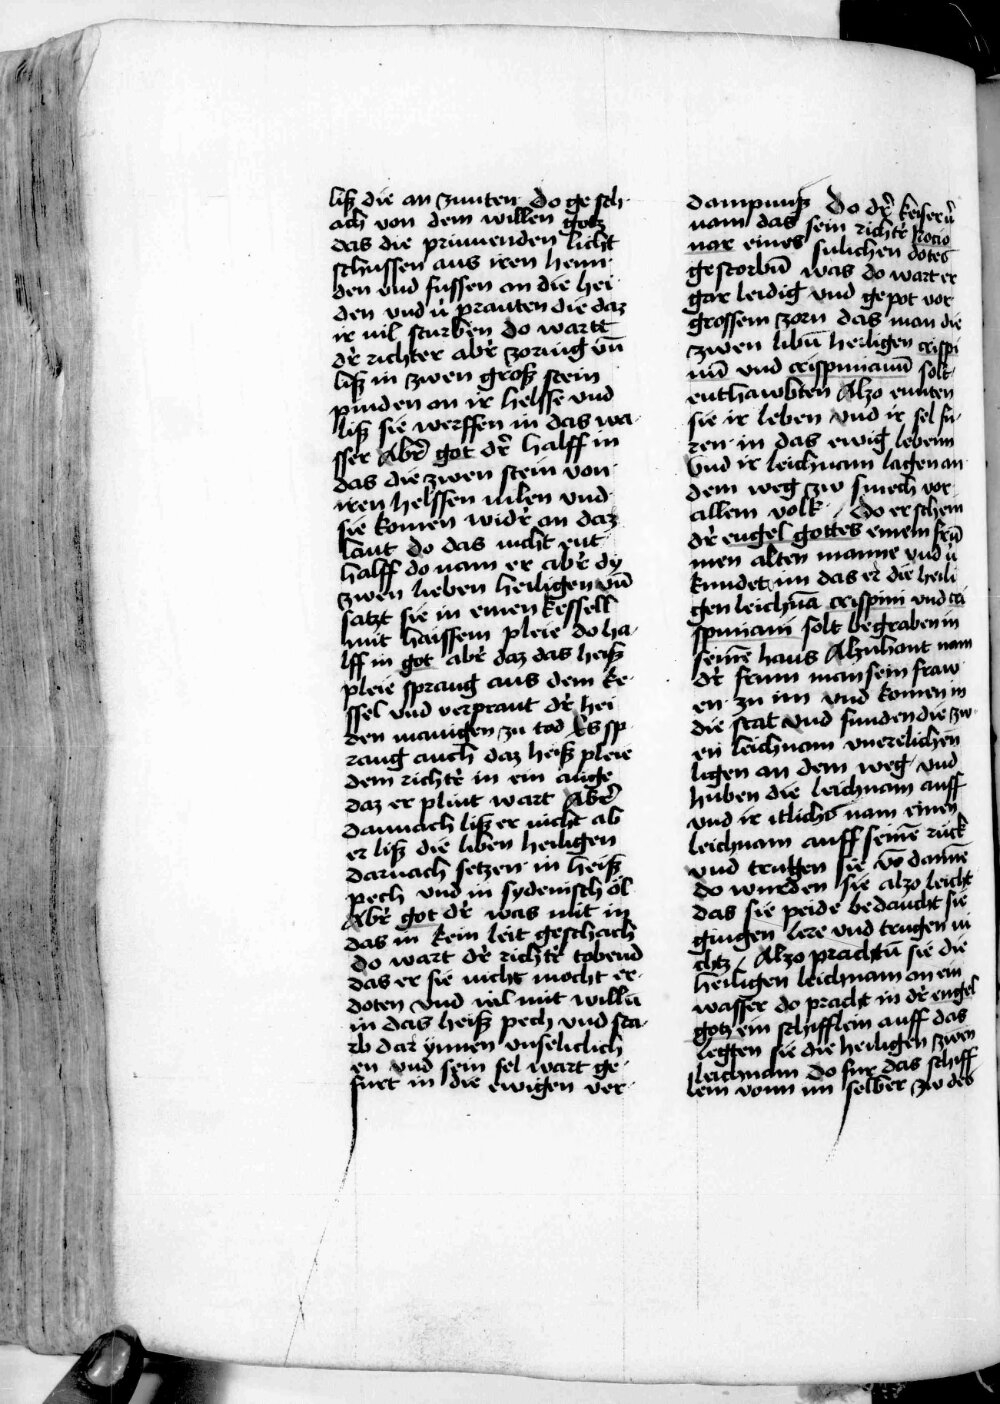 liß die an zunten do gesch
ach von dem willen gotz
das die prinnenden licht
schussen aus iren henn
den vnd fussen an die hei
den vnd v̓ pranten die daz
ir vil sturben do wartt
dr̓ richter abr̓ zornig vn̄
liß in zwen groß stein
pinden an ir helsse vnd
liß sie werffen in das wa
sser Abr̓ got dr̓ halff in
das die zwen stein von
iren helssen vilen vnd
sie komen widr̓ an daz
lant do das nicht ent
halff do nam er abr̓ dy
zwen lieben heiligen vn̄
satzt sie in einen kessell
mit haissem pleie do ha
lff in got abr̓ daz das heiß
pleie sprang aus dem ke
ssel vnd verprant dr̓ hei
den manigen zu tod Es sp
rang auch daz heiß pleie
dem richtr̓ in ein auge
daz er plint wart Abr̓
dannach liß er nicht ab
er liß die liben heiligen
darnach setzen in heiß
pech vnd in sydenisch öl
Abr̓ got dr̓ was mit in
das in kein leit geschach
do wart dr̓ richtr̓ tobend
das er sie nicht mocht er
doten vnd vil mit willn̄
in das heiß pech vnd sta
rb dar ynnen vnseliclich
en vnd sein sel wart ge
furt in die ewigen ver
dampnuß Do dr̓ keiser v̓
nam das sein richtr̓ Rocio
nar eines sulichen dotes
gestorbn̄ was do wart er
gar leidig vnd gepot vor
grossem zorn das man die
zwen libn̄ heiligen crispi
nū vnd crispinianū solt
enthawbten Alzo enntten
sie ir leben vnd ir sel fu
ren in das ewig lebenn
vnd ir leichnam lagen an
dem weg zw smech vor
allem volk / Do erschein
dr̓ engel gottes einem frū
men alten manne vnd v̓
kundet im das er die heili
gen leichnā crispini vnd cri
spiniani solt begraben in
seinē haus Alzuhant nam
dr̓ frum man sein fraw
en zu im vnd komen in
die stat vnd funden die zw
en leichnam vnerelichen
ligen an dem weg vnd
huben die leichnam auff
vnd ir itlichs nam einen
leichnam auff seinē ruck
vnd trugen sie vō dannē
do wurden sie alzo leicht
das sie peide bedaucht sie
gingen lere vnd trugen ni
chtz / Alzo prachtn̄ sie die
heiligen leichnam an ein
wasser do pracht in dr̓ engel
gotz ein schifflein auff das
legten sie die heiligen zwen
leichnam do fur das schiff
lein vonn im selber zw des